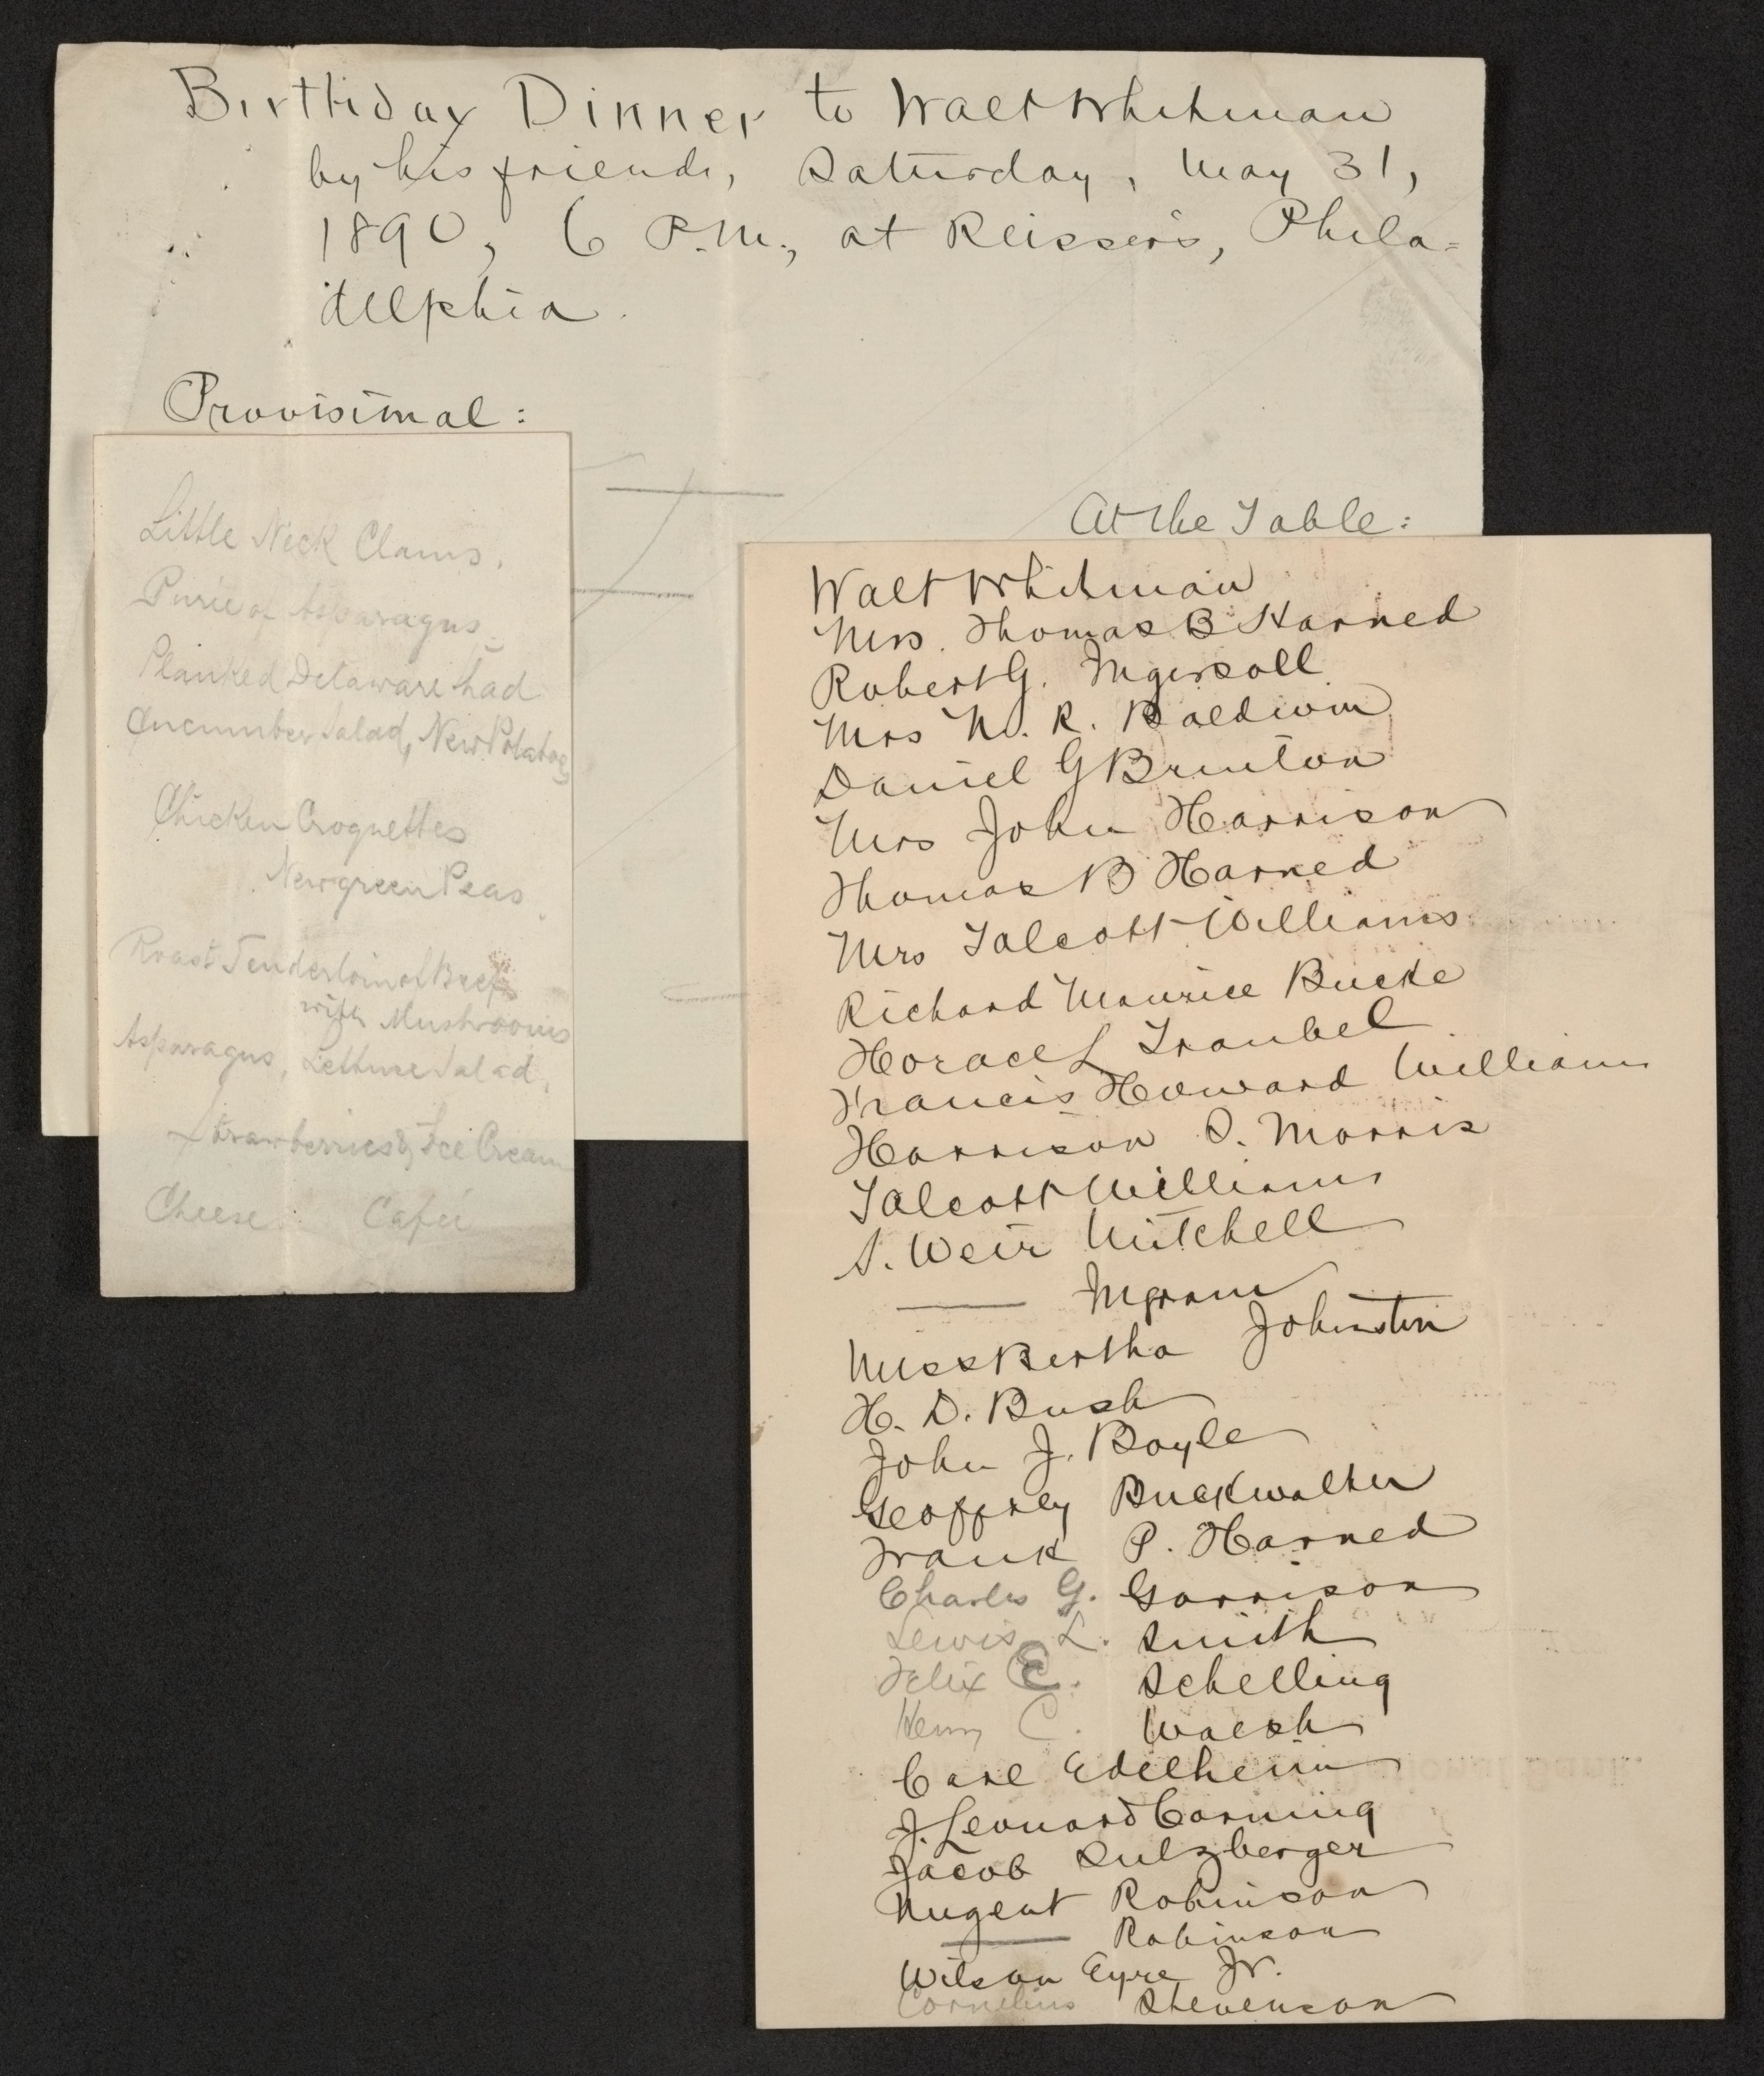 Birthday Dinner to Walt Whitman
by his friends, Saturday, May 31,
1890, 6 P.M., at Reisser's, Phila=
delphia.
Provisional:
Little Neck Clams.
Puree of Asparagus.
Planked Delaware Shad
Cucumber Salad, New Potatoes
Chicken Croquettes
New green Peas.
Roast Tenderloin of Beef
with Mushrooms
Asparagus, Lettuce Salad,
Strawberries & Ice Cream
Cheese. Café
At the Table:
Walt Whitman
Mrs. Thomas B Harned
Robert G. Ingersoll
Mrs W. R. Baldwin
Daniel G Brinton
Mrs John Harrison
Thomas B Harned
Mrs Talcott Williams
Richard Maurice Bucke
Horace L Traubel
Francis Howard Williams
Harrison S. Morris
Talcott Williams
S. Weir Mitchell
—— Ingram
Miss Bertha Johnston
H. D. Bush
John J. Boyle
Geoffrey Buckwalter
Frank P. Harned
Charles G. Garrison
Lewis L. Smith
Felix E. Schelling
Henry C. Walsh
Carl Edelheim
J. Leonard Corning
Jacob Sulzberger
Nugent Robinson
—— Robinson
Wilson Eyre Jr.
Cornelius Stevenson